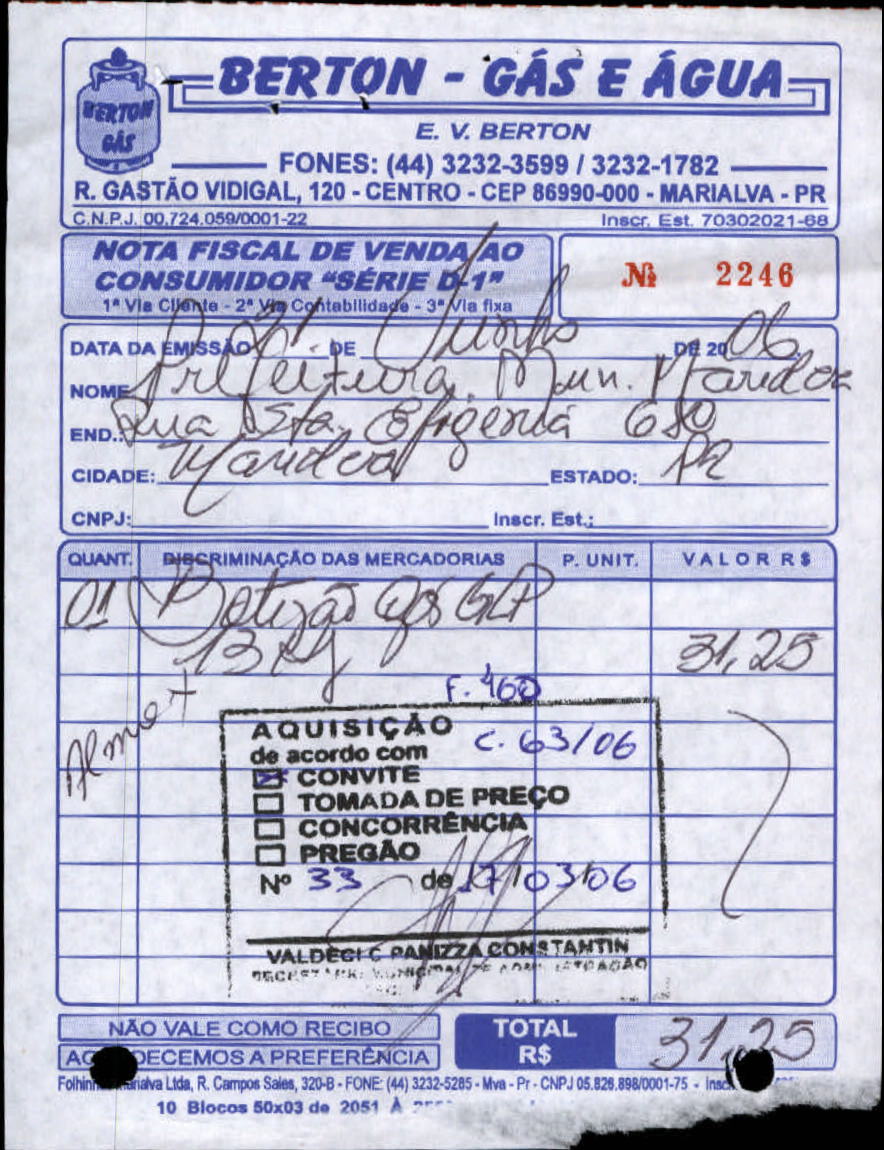 BERTON GÁS
BERTON - GÁS E ÁGUA
E. V. BERTON
FONES: (44) 3232-3599 / 3232-1782
R. GASTÃO VIDIGAL, 120 - CENTRO - CEP 86990-000 - MARIALVA - PR
C.N.P.J. 00.724.059/0001-22 Inscr. Est. 70302021-68
NOTA FISCAL DE VENDA AO
CONSUMIDOR “SÉRIE D-1”
1ª Via Cliente - 2ª Via Contabilidade - 3ª Via fixa
Nº 2246
DATA DA EMISSÃO DE Junho DE 2006
NOME Prefeitura Mun. Maridva
END.: Rua Sta. Efigenia 680
CIDADE: Maridva ESTADO: PR
CNPJ: Inscr. Est.:
QUANT. DISCRIMINAÇÃO DAS MERCADORIAS P. UNIT. VALOR R$
01 Botijão Gás GLP
13 Kg 31,25
F. 460
Almox
AQUISIÇÃO
de acordo com C. 63/06
CONVITE
TOMADA DE PREÇO
CONCORRÊNCIA
PREGÃO
Nº 33 de 17/03/06
VALDECI C PANIZZA CONSTANTIN
NÃO VALE COMO RECIBO
DECEMOS A PREFERÊNCIA
TOTAL R$ 31,25
Ltda, R. Campos Sales, 320-B - FONE: (44) 3232-5285 - Mva - Pr - CNPJ 05.826.898/0001-75 -
10 Blocos 50x03 de 2051 À